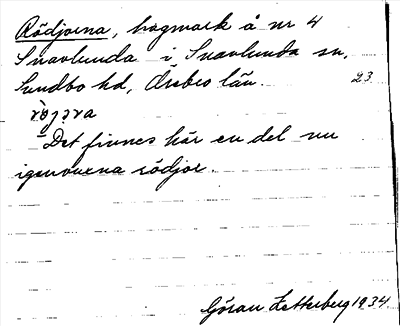 Rödjorna, hagmark å nr 4
Snavlunda i Snavlunda sn,
Sundbo hd, Örebro län.
23
Det finnes här en del nu
igenvuxna rödjor.
Göran Zetterberg 1934